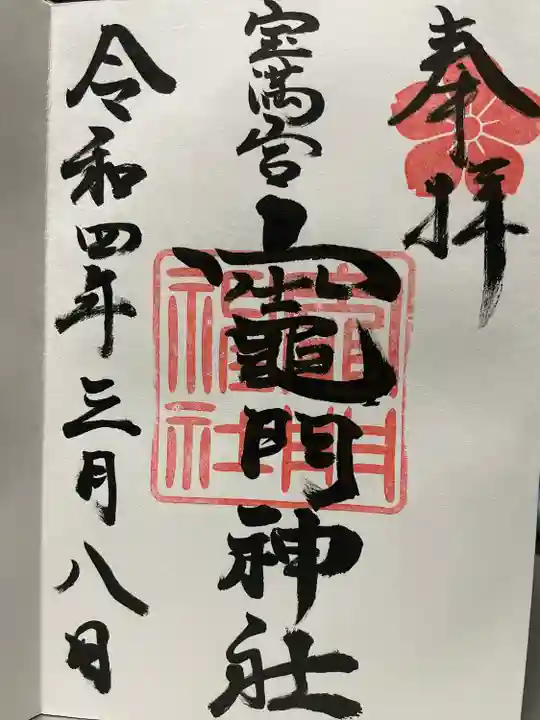 奉拝
宝満宮
竈門神社
竈門神社
令和四年三月八日